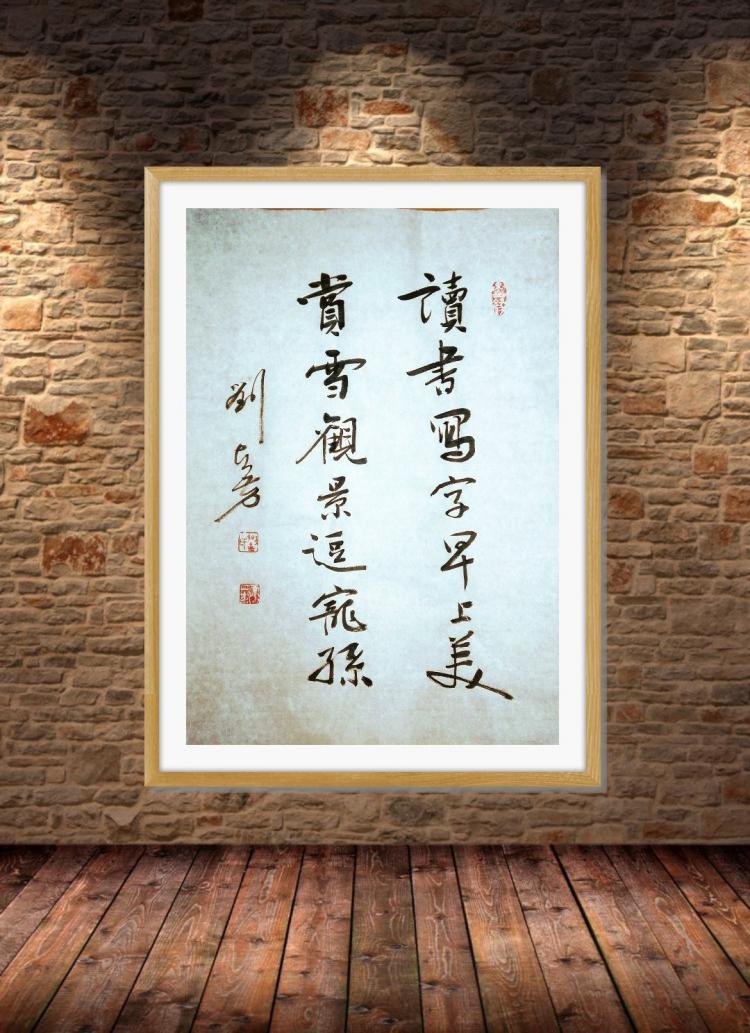 讀書寫字早上美
賞雪觀景逗寵孫
劉